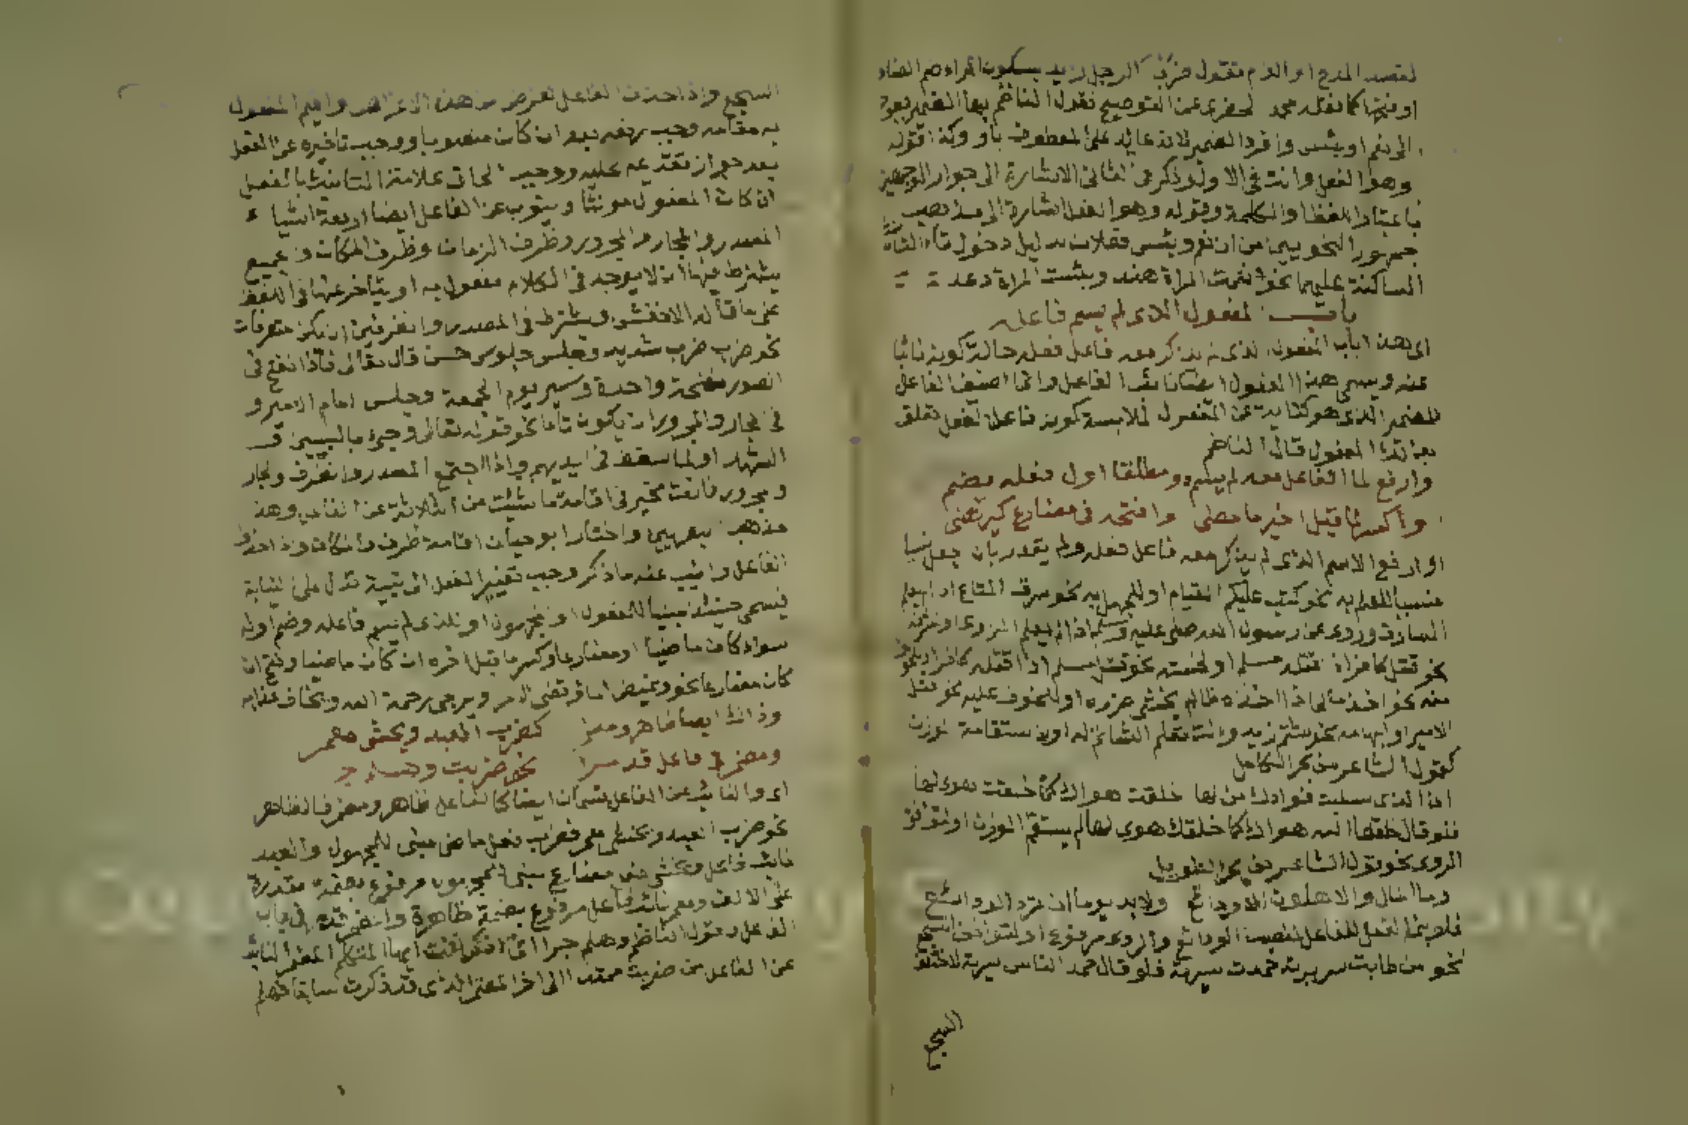 لقصد المدح او الذم فتقول ضرب الرجل زيد بسكون الراء وضم الضاد
او فتحها كما نقله محمد الحضري عن التوضيح فقول الناظم بها الضمير يعود
الى نعم او بئس وافرد الضمير لانه عائد على المعطوف باو وكذا قوله
وهو الفعل وانت في الاول وذكر في الثاني الاشارة الى جواز الوجهين
باعتبار اللفظ والكلمة وقوله وهو الفعل اشارة الى مذهب
جمهور النحويين من ان نعم وبئس فعلان بدليل دخول تاء التأنيث
الساكنة عليهما نحو نعمت المرأة هند وبئست المرأة دعد
باب المفعول الذي لم يسم فاعله
اي هذا باب المفعول الذي لم يذكر معه فاعل فعله حالة كونه نائبا
عنه ويسمى هذا المفعول ايضا نائب الفاعل وانما اضيف الفاعل
للضمير الذي هو كناية عن المفعول لملابسة كونه فاعلا لفعل تعلق
بهذا المفعول قال الناظم
وارفع لما الفاعل معه لم يلم ومطلقا اول فعله يضم
واكسر لما قبل اخير ما مضى وافتحه في مضارع كيرتضى
اي ارفع الاسم الذي لم يذكر معه فاعل فعله ولم يقدر بان جعل نسيا
منسيا للعلم به نحو كتب عليكم الصيام او للجهل به نحو سرق المتاع اذا لم يعلم
السارق وروي عن رسول الله صلى عليه وسلم اذا لم يعلم الراوي او
نحو قتل كافر اذا قتله مسلم او لخسته نحو قتل مسلم اذا قتله كافر او
منه نحو اخذ مالي اذا اخذه ظالم يخشى ضرره او للخوف عليه نحو قتل
الامير او ابهامه نحو شتم زيد وانت تعلم الشاتم له او لاستقامة الوزن
كقول الشاعر من بحر الكامل
ان الذي سلبت فؤادك من لها خلقت هواك كما خلقت هوى لها
فلو قال خلقها الله هواك كما خلقك هوى لها لم يستقم الوزن او لتوافق
الروي نحو قول الشاعر من بحر الطويل
وما المال والاهلون الا ودائع ولا بد يوما ان ترد الودائع
فلو بنى الفعل للفاعل لنصب الودائع والروي مرفوع او لتوافق السجع
نحو من طابت سريرته حمدت سيرته فلو قال حمد الناس سيرته لاختلف
السجع
السجع واذا حذف الفاعل لغرض من هذه الاغراض واقيم المفعول
به مقامه وجب رفعه بعد ان كان منصوبا ووجب تأخيره عن الفعل
بعد جواز تقديمه عليه ووجب الحاق علامة التأنيث بالفعل
ان كان المفعول مؤنثا وينوب عن الفاعل ايضا اربعة اشياء
المصدر والجار والمجرور وظرف الزمان وظرف المكان وجميع
يشترط فيها ان لا يوجد في الكلام مفعول به او يتأخر عنها في اللفظ
على ما قاله الاخفش ويشترط في المصدر والظرفين ان يكون متصرفات
نحو ضرب ضرب شديد وجلس جلوس حسن قال تعالى فاذا نفخ في
الصور نفخة واحدة وسير يوم الجمعة وجلس امام الامير و
في الجار والمجرور ان يكون تاما نحو قوله تعالى وجيء بالنبيين و
الشهداء ولما سقط في ايديهم واذا اجتمع المصدر والظرف والجار
ومجرور فانت مخير في اقامة ما شئت من الثلاثة عن الفاعل وهذا
مذهب البصريين واختار ابو حيان اقامة ظرف المكان واذا حذف
الفاعل وانيب عنه ما ذكر وجب تغيير الفعل الى بنية تدل على النيابة
فيسمى حينئذ مبنيا للمفعول او للمجهول او للذي لم يسم فاعله وضم اوله
سواء كان ماضيا او مضارعا وكسر ما قبل اخره ان كان ماضيا وفتح ان
كان مضارعا نحو وغيض الماء وقضي الامر ويرجى رحمة الله ويخاف عذابه
وذاك ايضا ظاهر ومضمر كضرب العبد ويخشى معمر
ومضمر في فاعل قد مرا نحو ضربت وهلم جرا
اي والنائب عن الفاعل ينقسم ايضا كالفاعل ظاهر ومضمر فالظاهر
نحو ضرب العبد ويخشى معمر فضرب فعل ماض مبني للمجهول والعبد
نائب فاعل ويخشى فعل مضارع مبني للمجهول مرفوع بضمة مقدرة
على الالف ومعمر نائب فاعل مرفوع بضمة ظاهرة والمضمر قدم في باب
الفاعل وقول الناظم وهلم جرا اي اذكر انت ايها المتكلم المضمر النائب
عن الفاعل من ضربت ممتدا الى اخر المضمر الذي قد ذكرت سابقا فهلم